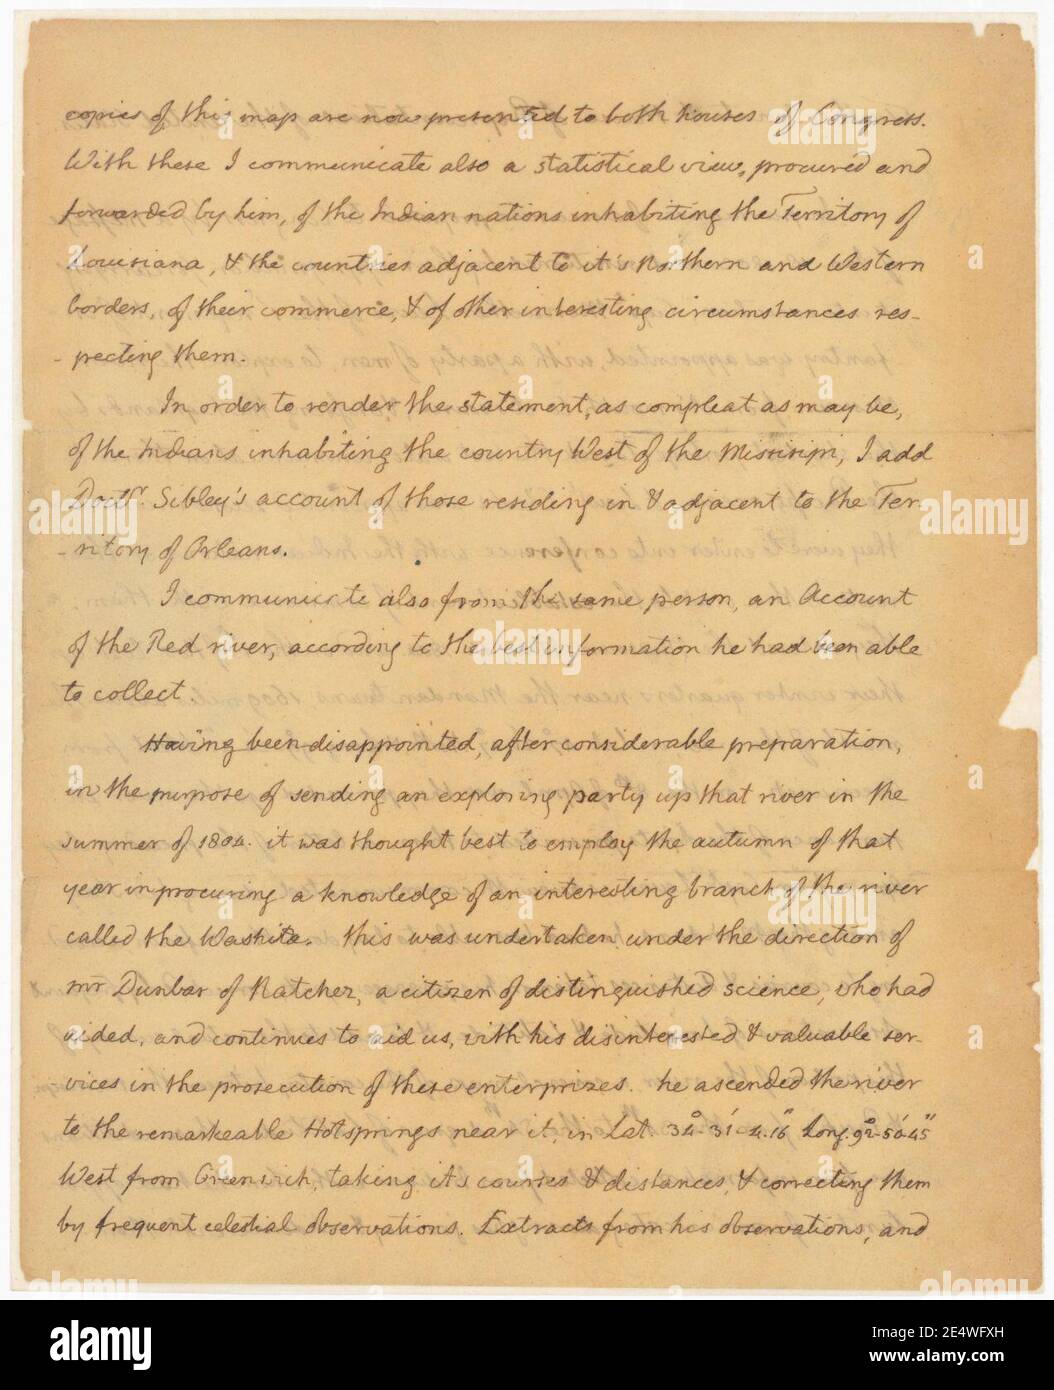 copies of this map are now presented to both houses of Congress.
With these I communicate also a statistical view, procured and
forwarded by him, of the Indian nations inhabiting the Territory of
Louisiana, & the countries adjacent to it's Northern and Western
borders, of their commerce, & of other interesting circumstances res-
-pecting them.
In order to render the statement, as compleat as may be,
of the Indians inhabiting the country West of the Missisipi, I add
Doctr. Sibley's account of those residing in & adjacent to the Ter-
-ritory of Orleans.
I communicate also from the same person, an Account
of the Red river, according to the best information he had been able
to collect.
Having been disappointed, after considerable preparation,
in the purpose of sending an exploring party up that river in the
summer of 1804. it was thought best to employ the autumn of that
year in procuring a knowledge of an interesting branch of the river
called the Washita. this was undertaken under the direction of
mr Dunbar of Natchez, a citizen of distinguished science, who had
aided, and continues to aid us, with his disinterested & valuable ser-
vices in the prosecution of these enterprizes. he ascended the river
to the remarkeable Hotsprings near it, in Lat. 34°-31'-4.16" Long. 92°-50'-45"
West from Greenwich, taking it's courses & distances, & correcting them
by frequent celestial observations. Extracts from his observations, and
alamy
Image ID: 2E4WFXH
www.alamy.com